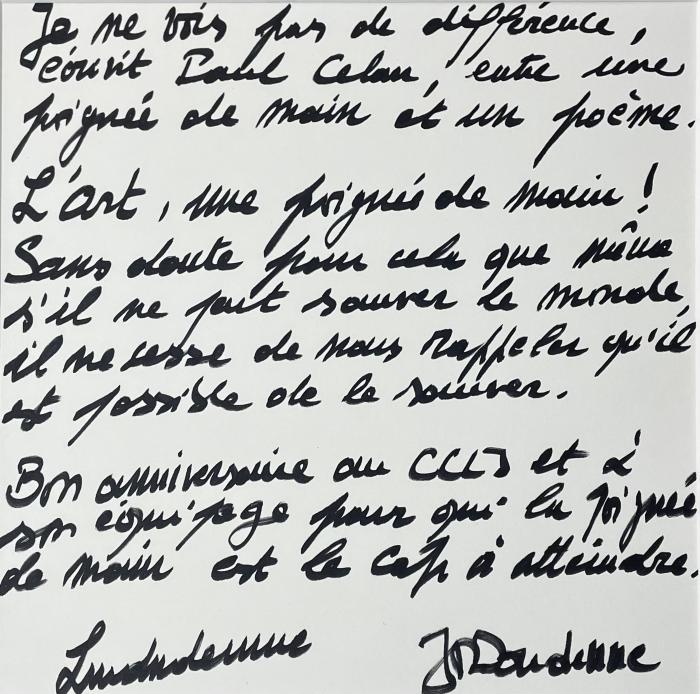 Je ne vois pas de différence,
écrivit Paul Celan, entre une
poignée de main et un poème.
L'art, une poignée de main !
Sans doute pour cela que même
s'il ne peut sauver le monde,
il ne cesse de nous rappeler qu'il
est possible de le sauver.
Bon anniversaire au CCLJ et à
son équipage pour qui la poignée
de main est le cap à atteindre.